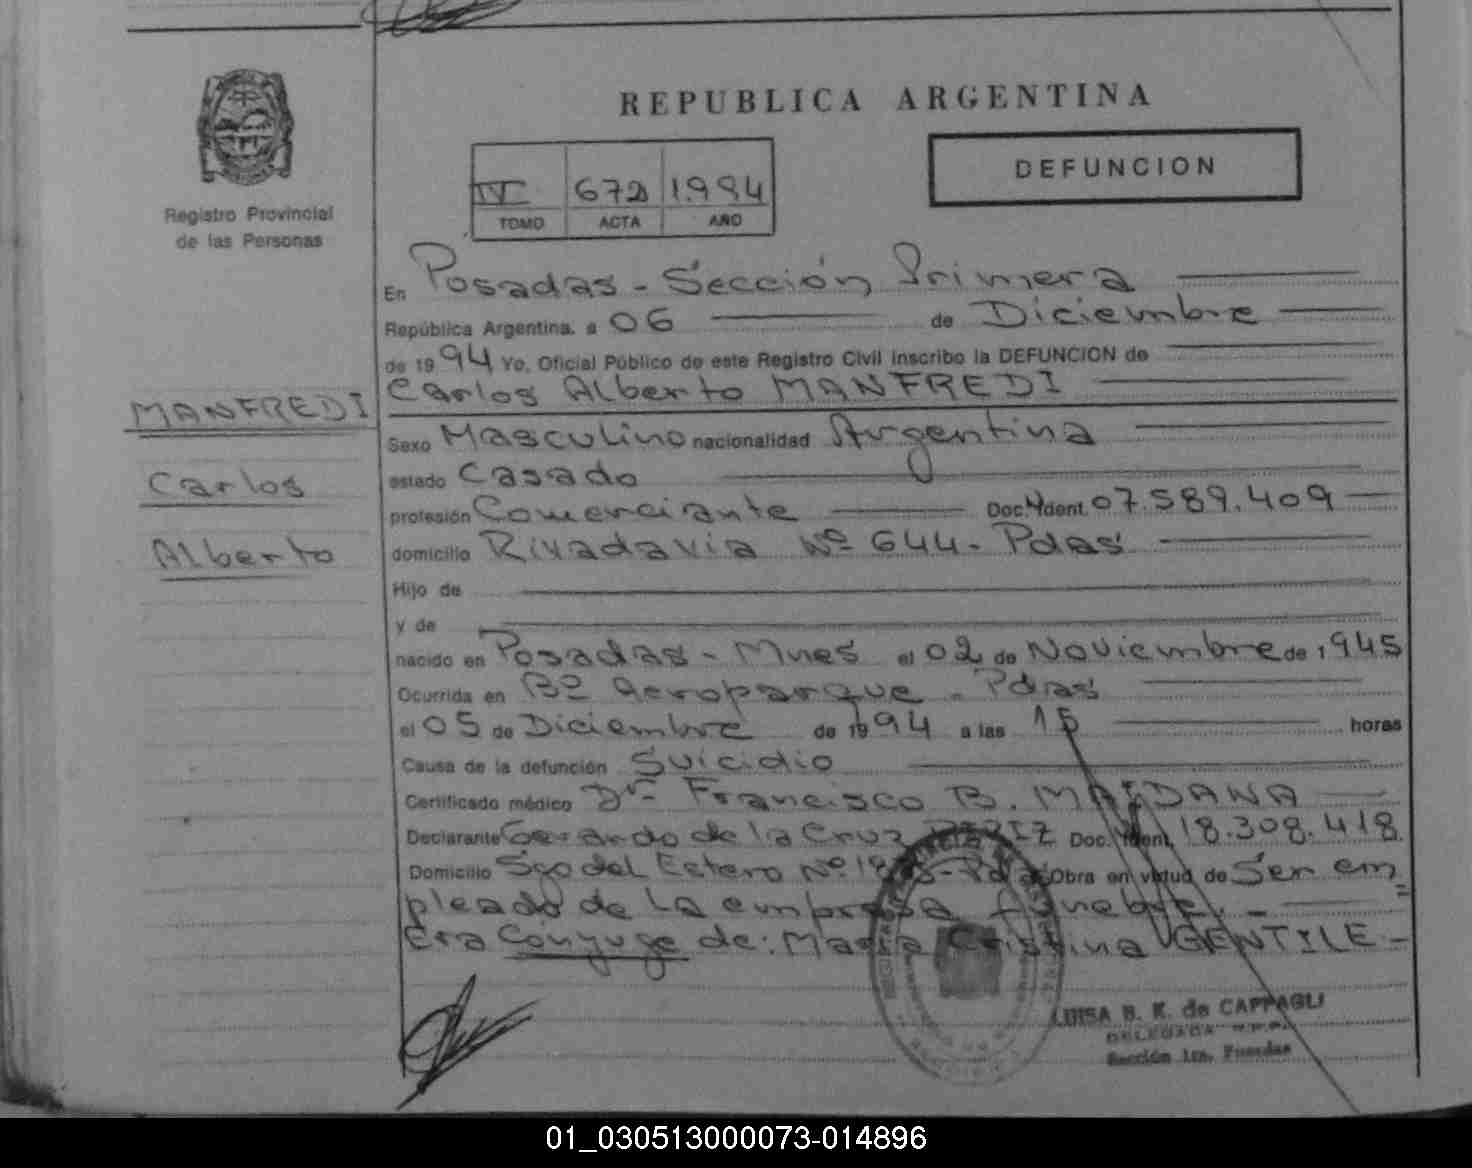 REPUBLICA ARGENTINA
DEFUNCION
IV 672 1.994
TOMO ACTA AÑO
Registro Provincial
de las Personas
En Posadas - Sección Primera
República Argentina, a 06 de Diciembre
de 1994 Yo, Oficial Público de este Registro Civil inscribo la DEFUNCION de
Carlos Alberto MANFREDI
MANFREDI
Carlos
Alberto
Sexo Masculino nacionalidad Argentina
estado Casado
profesión Comerciante Doc. Ydent. 07.589.409
domicilio Rivadavia Nº 644 - Pdas
Hijo de
y de
nacido en Posadas - Mnes el 02 de Noviembre de 1945
Ocurrida en Bº Aeroparque - Pdas
el 05 de Diciembre de 1994 a las 15 horas
Causa de la defunción Suicidio
Certificado médico Dr. Francisco B. MAIDANA
Declarante Gerardo de la Cruz Doc. Ydent. 18.308.418
Domicilio Sgo del Estero Nº - Pdas Obra en virtud de Ser em
pleado de la empresa funebre. -
Era Cónyuge de: María Cristina GENTILE -
LUISA B. K. de CAPPAGLI
DELEGADA R.P.P.
Sección 1ra. Posadas
01_030513000073-014896